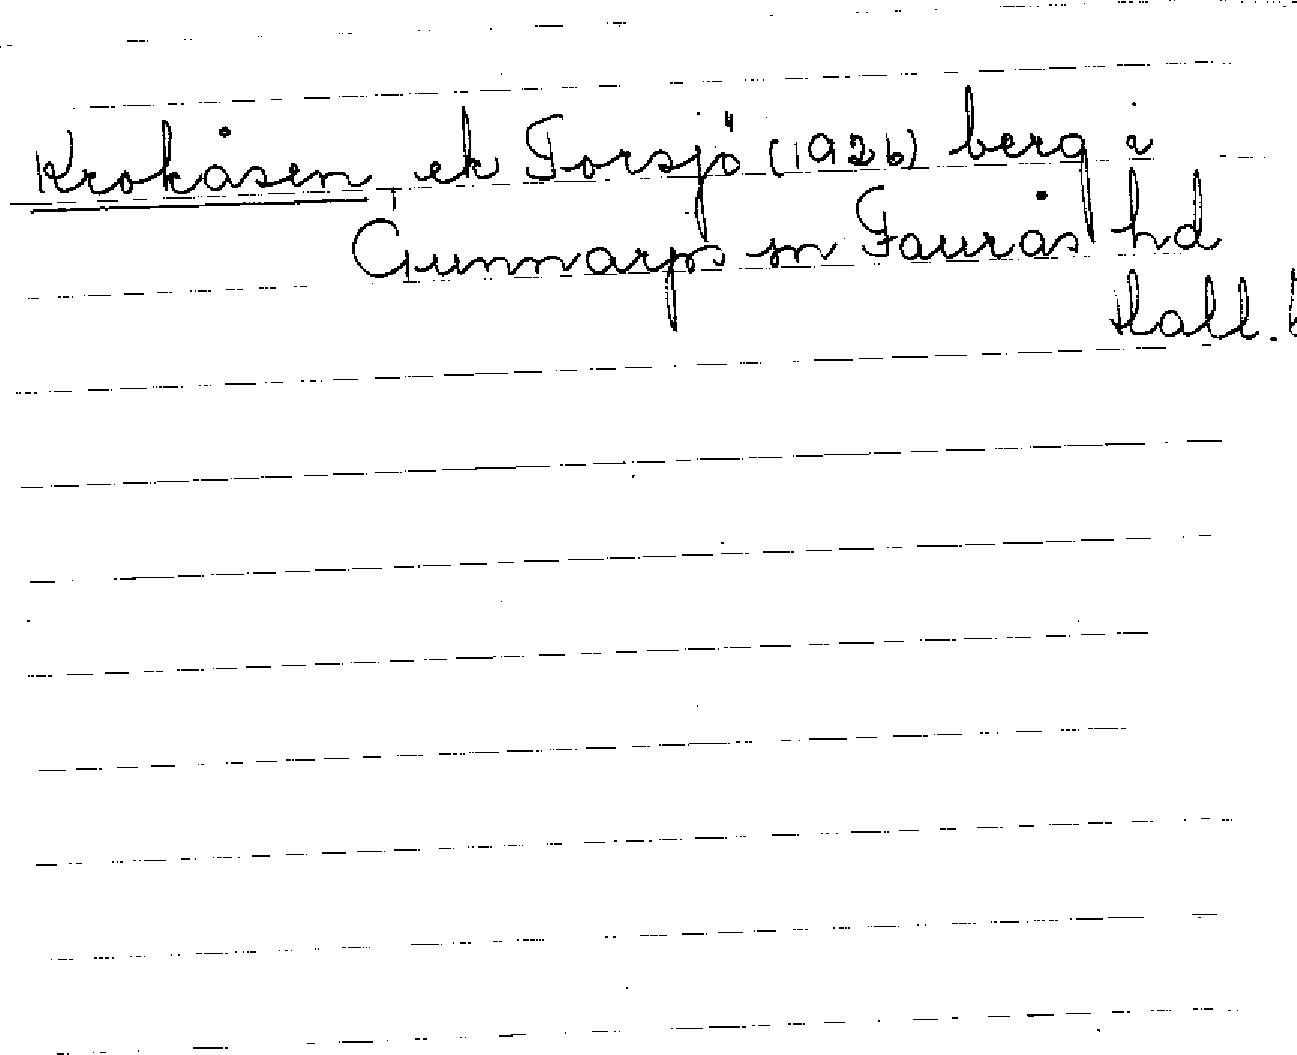 Krokåsen, ek Torsjö (1926) berg i
Gunnarps sn Faurås hd
Hall. l